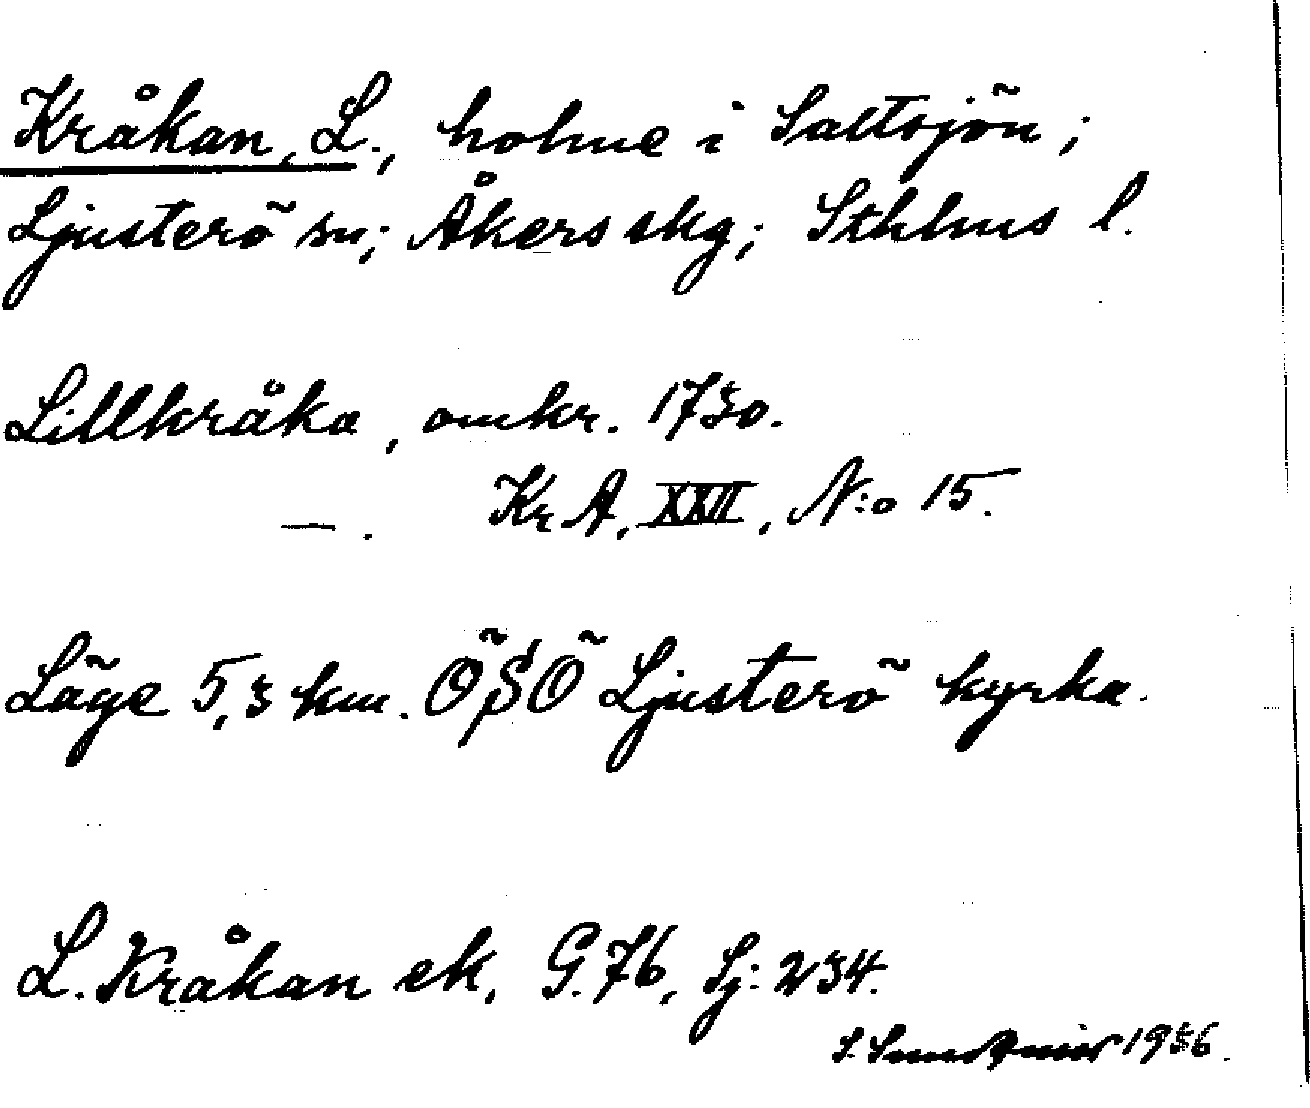 Kråkan, L., holme i Saltsjön;
Ljusterö sn; Åkers skg; Sthlms l.
Lillkråka, omkr. 1730.
—. Kr A, XXII, N:o 15.
Läge 5,3 km. ÖSÖ Ljusterö kyrka.
L. Kråkan ek, G.76, Sj: 234.
S. 1936.